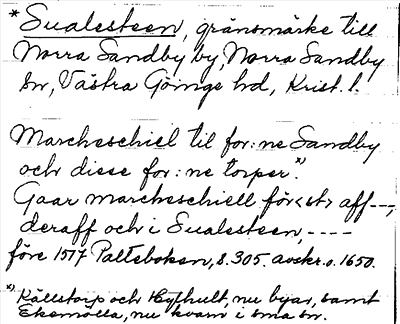 * Sualesteen, gränsmärke till
Norra Sandby by, Norra Sandby
sn, Västra Göinge hd, Krist. l.
Marcheschiel til for:ne Sandby
och diese for:ne torper x)
Gaar marcheschiell för<st> aff---,
deraff och i Sualesteen, ----
före 1577 Palteboken, s. 305. avskr. o. 1650.
x) Källstorp och Hylhult, nu byar, samt
Ekemölla, nu kvarn i sma sn.